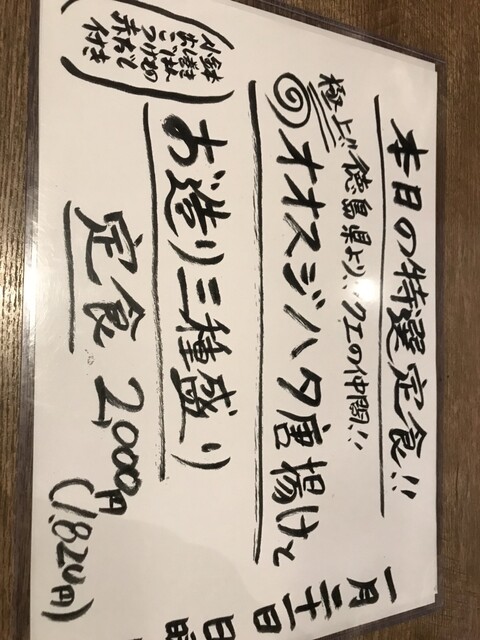 本日の特選定食!!
極上!!徳島県より、クエの仲間!!
オオスジハタ唐揚げと
お造り三種盛り
定食 2,000円
(1,820円)
(小鉢
ごはん
つけもの
赤だし
付き)
一月三十一日
日